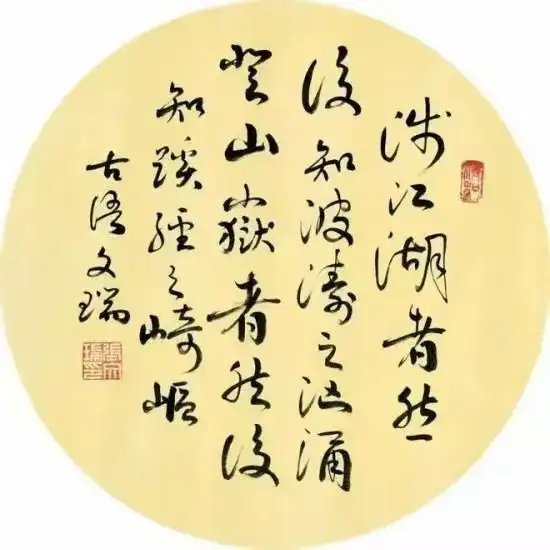 涉江湖者然
後知波濤之汹涌
登山嶽者然後
知蹊徑之崎嶇
古語文瑞